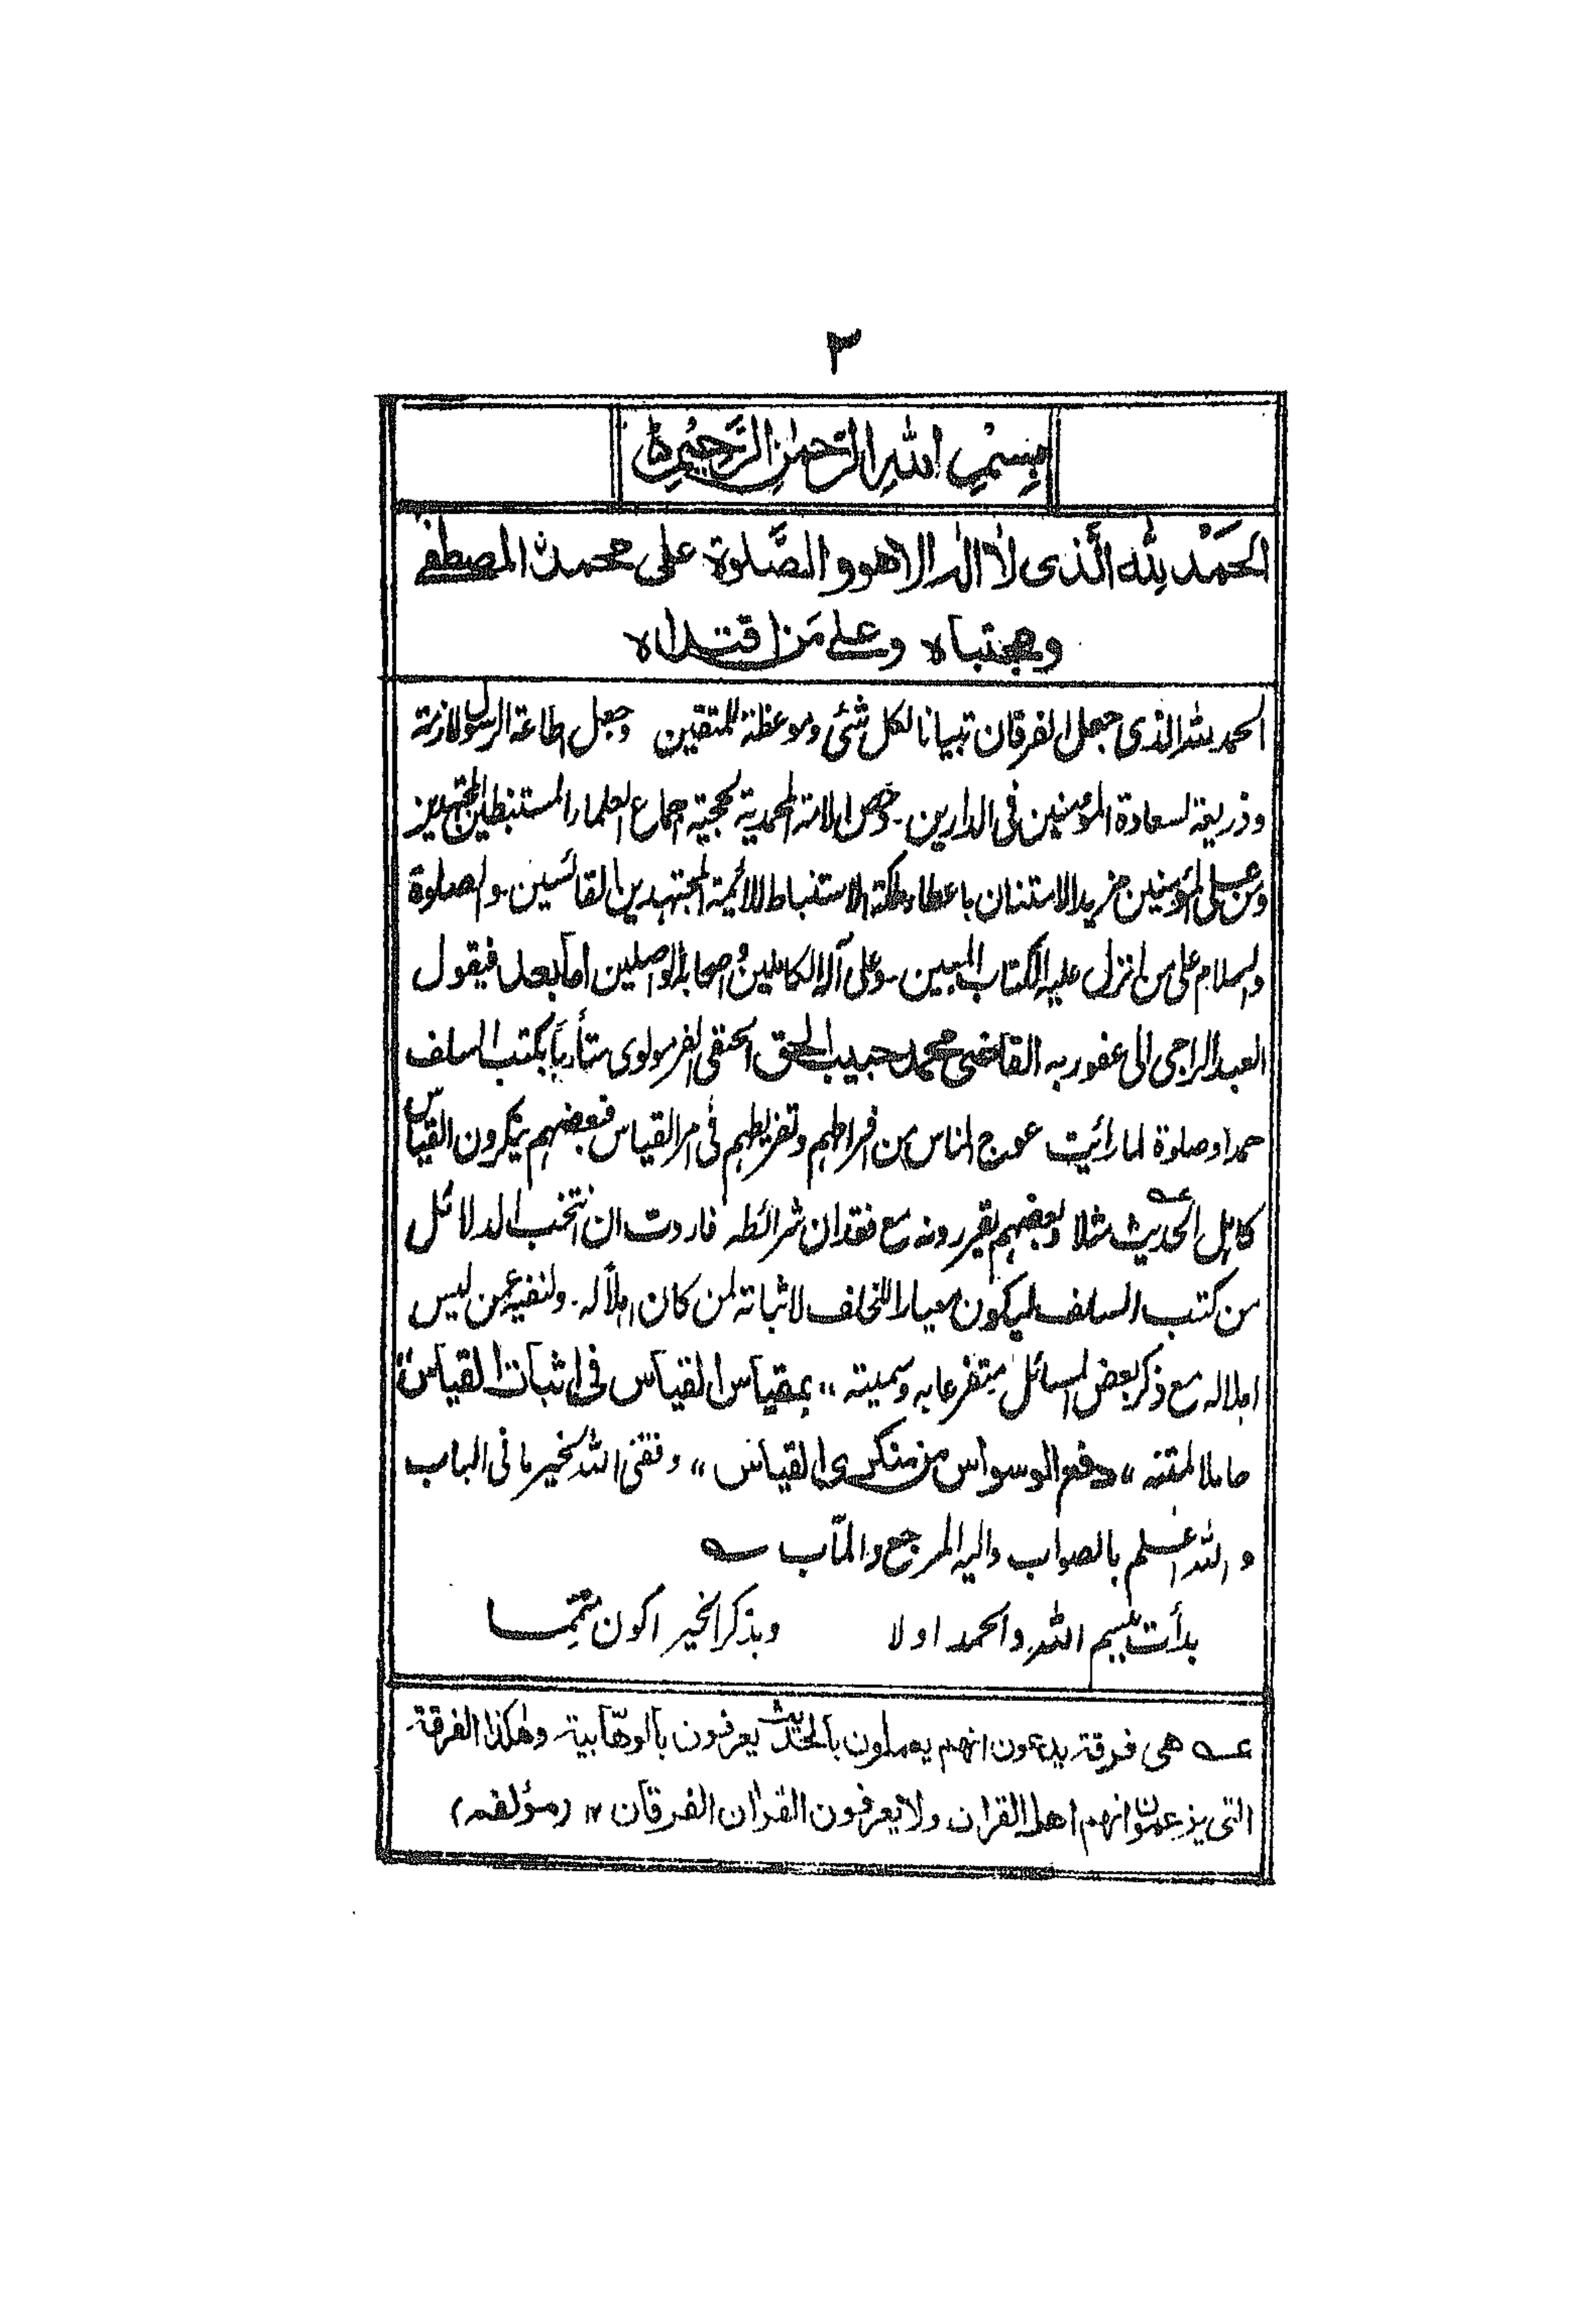 ٣
بِسْمِ اللهِ الرَّحْمٰنِ الرَّحِيْمِ
الحَمْدُ لِلّٰه الَّذى لا اله الا هو والصَّلوة على محمدن المصطفے
ومجتباه وعلے مَن اقتداه
الحمد للہ الذى جعل الفرقان تبيانا لكل شئ وموعظة للمتقين وجعل اطاعة الرسول لازمة
وذريعة لسعادة المؤمنين فى الدارين۔ وخص الامة المحمدية بحجية اجماع العلماء المستنبطين المجتهدين
ومن على المؤمنين مزيد الامتنان باعطاء ملكة الاستنباط للائمة المجتهدين القائسين۔ والصلوة
والسلام على من انزل عليه الكتاب المبين۔ وعلى آله الكاملين واصحابه الواصلين اما بعد فيقول
العبد الراجى الى عفو ربه القاضى محمد حبيب الحق الحنفى الفرمولوى متأدبا بكتب السلف
حمدا وصلوة لما رائيت عوج الناس من افراطهم وتفريطهم فى امر القياس فبعضهم ينكرون القياس
كاهل الحديث عه مثلا وبعضهم يقررونه مع فقدان شرائطه فاردت ان انتخب الدلائل
من كتب السلف ليكون معيارا للخلف لاثباته لمن كان اهلا له۔ ولنفيه عمن ليس
اهلا له مع ذكر بعض المسائل متفرعا به وسميته ،، بمقياس القياس فى اثبات القياس،،
حاملا لمتنه ،، دفع الوسواس من منكرى القياس ،، وفقنى الله لخير ما فى الباب
والله اعلم بالصواب واليه المرجع والمآب ے
بدأت ببسم الله والحمد اولا وبذكر الخير اكون متمما
عه هى فرقة يدعون انهم يعملون بالحديث يعرفون بالوهّابية۔ وهكذا الفرقة
التى يزعمون انهم اهل القران ولا يعرفون القران الفرقان ١٢ (مؤلفه)